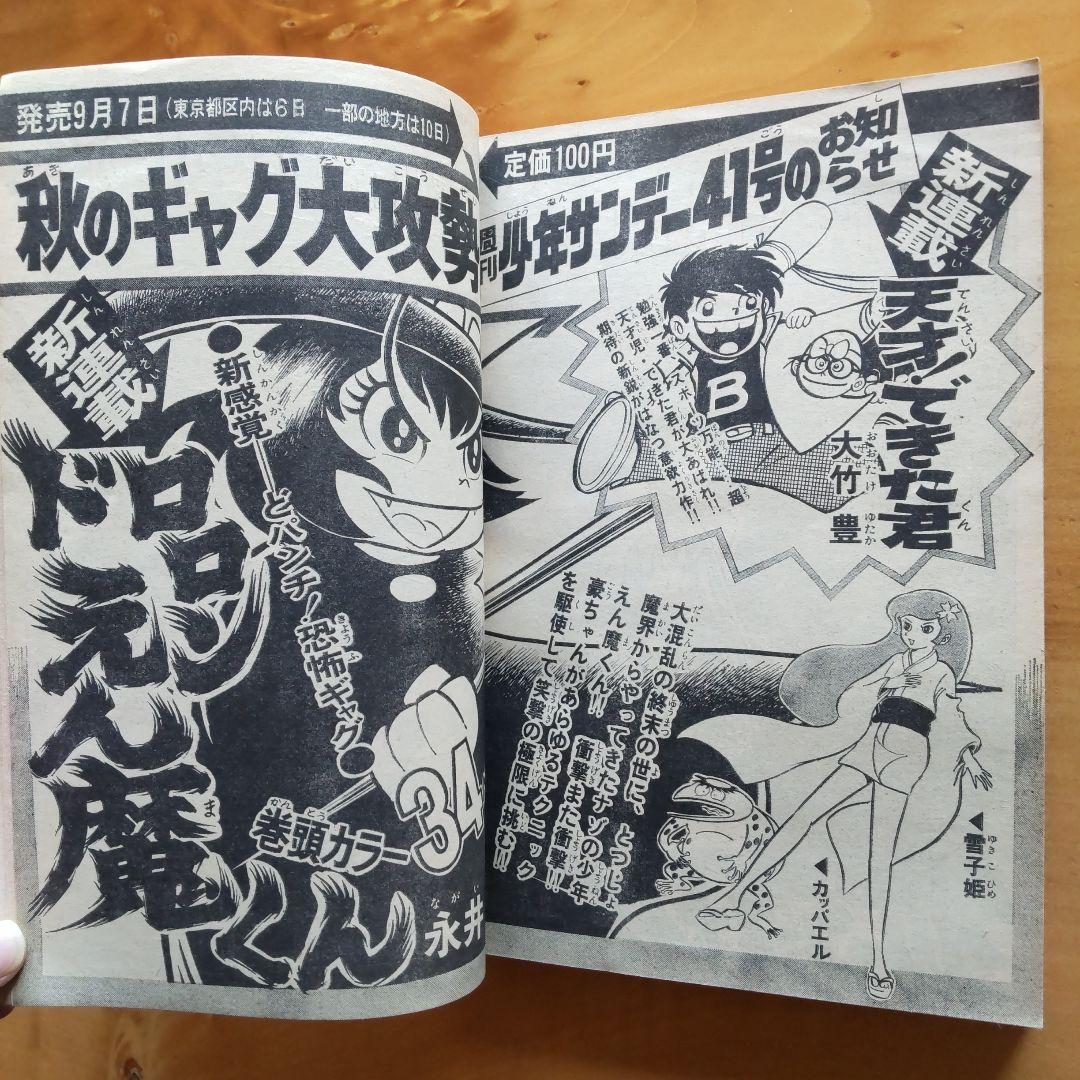 定価100円
週刊少年サンデー41号のお知らせ
新連載
天才!できた君
大竹豊
勉強一番!スポーツ万能!超
天才児・できた君が大あばれ!!
期待の新鋭がはなつ意欲力作!!
発売9月7日(東京都区内は6日 一部の地方は10日)
秋のギャグ大攻勢
新連載
ドロロンえん魔くん
●新感覚―どパンチ!恐怖ギャグ●
巻頭カラー34
永井
大混乱の終末の世に、とつじょ
魔界からやってきたナゾの少年
えん魔くん!! 衝撃また衝撃!!
豪ちゃんがあらゆるテクニック
を駆使して笑撃の極限に挑む!!
▲雪子姫
▲カッパエル
B